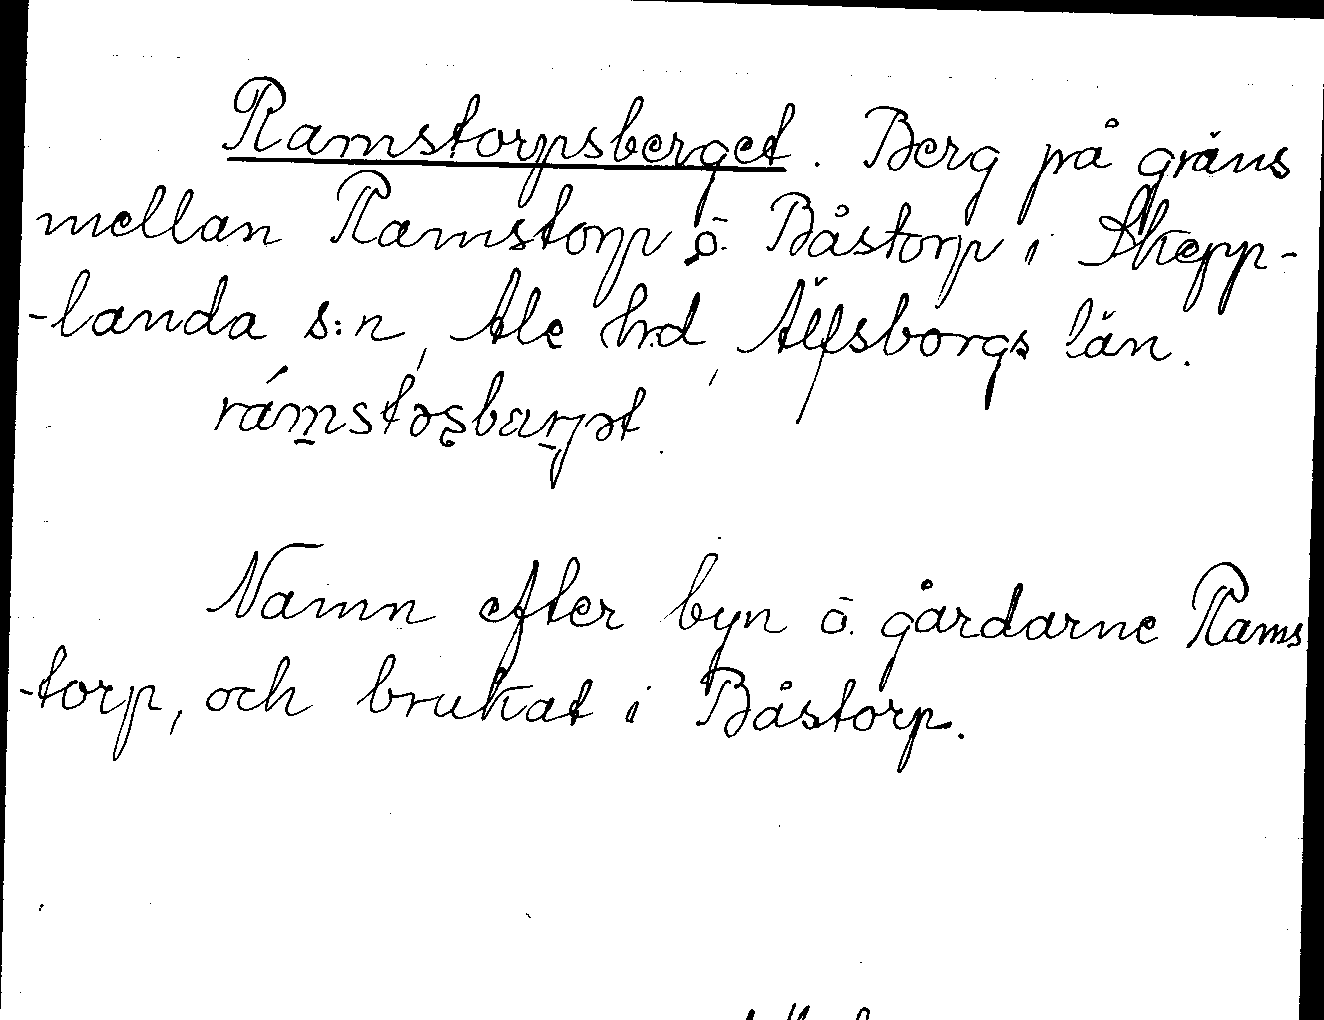 Ramstorpsberget. Berg på gräns
mellan Ramstorp o. Båstorp i Skepp-
-landa s:n, Ale hrd, Älfsborgs län.
rám̱stəʂbæṟjət
Namn efter byn o. gårdarne Rams
-torp, och brukat i Båstorp.